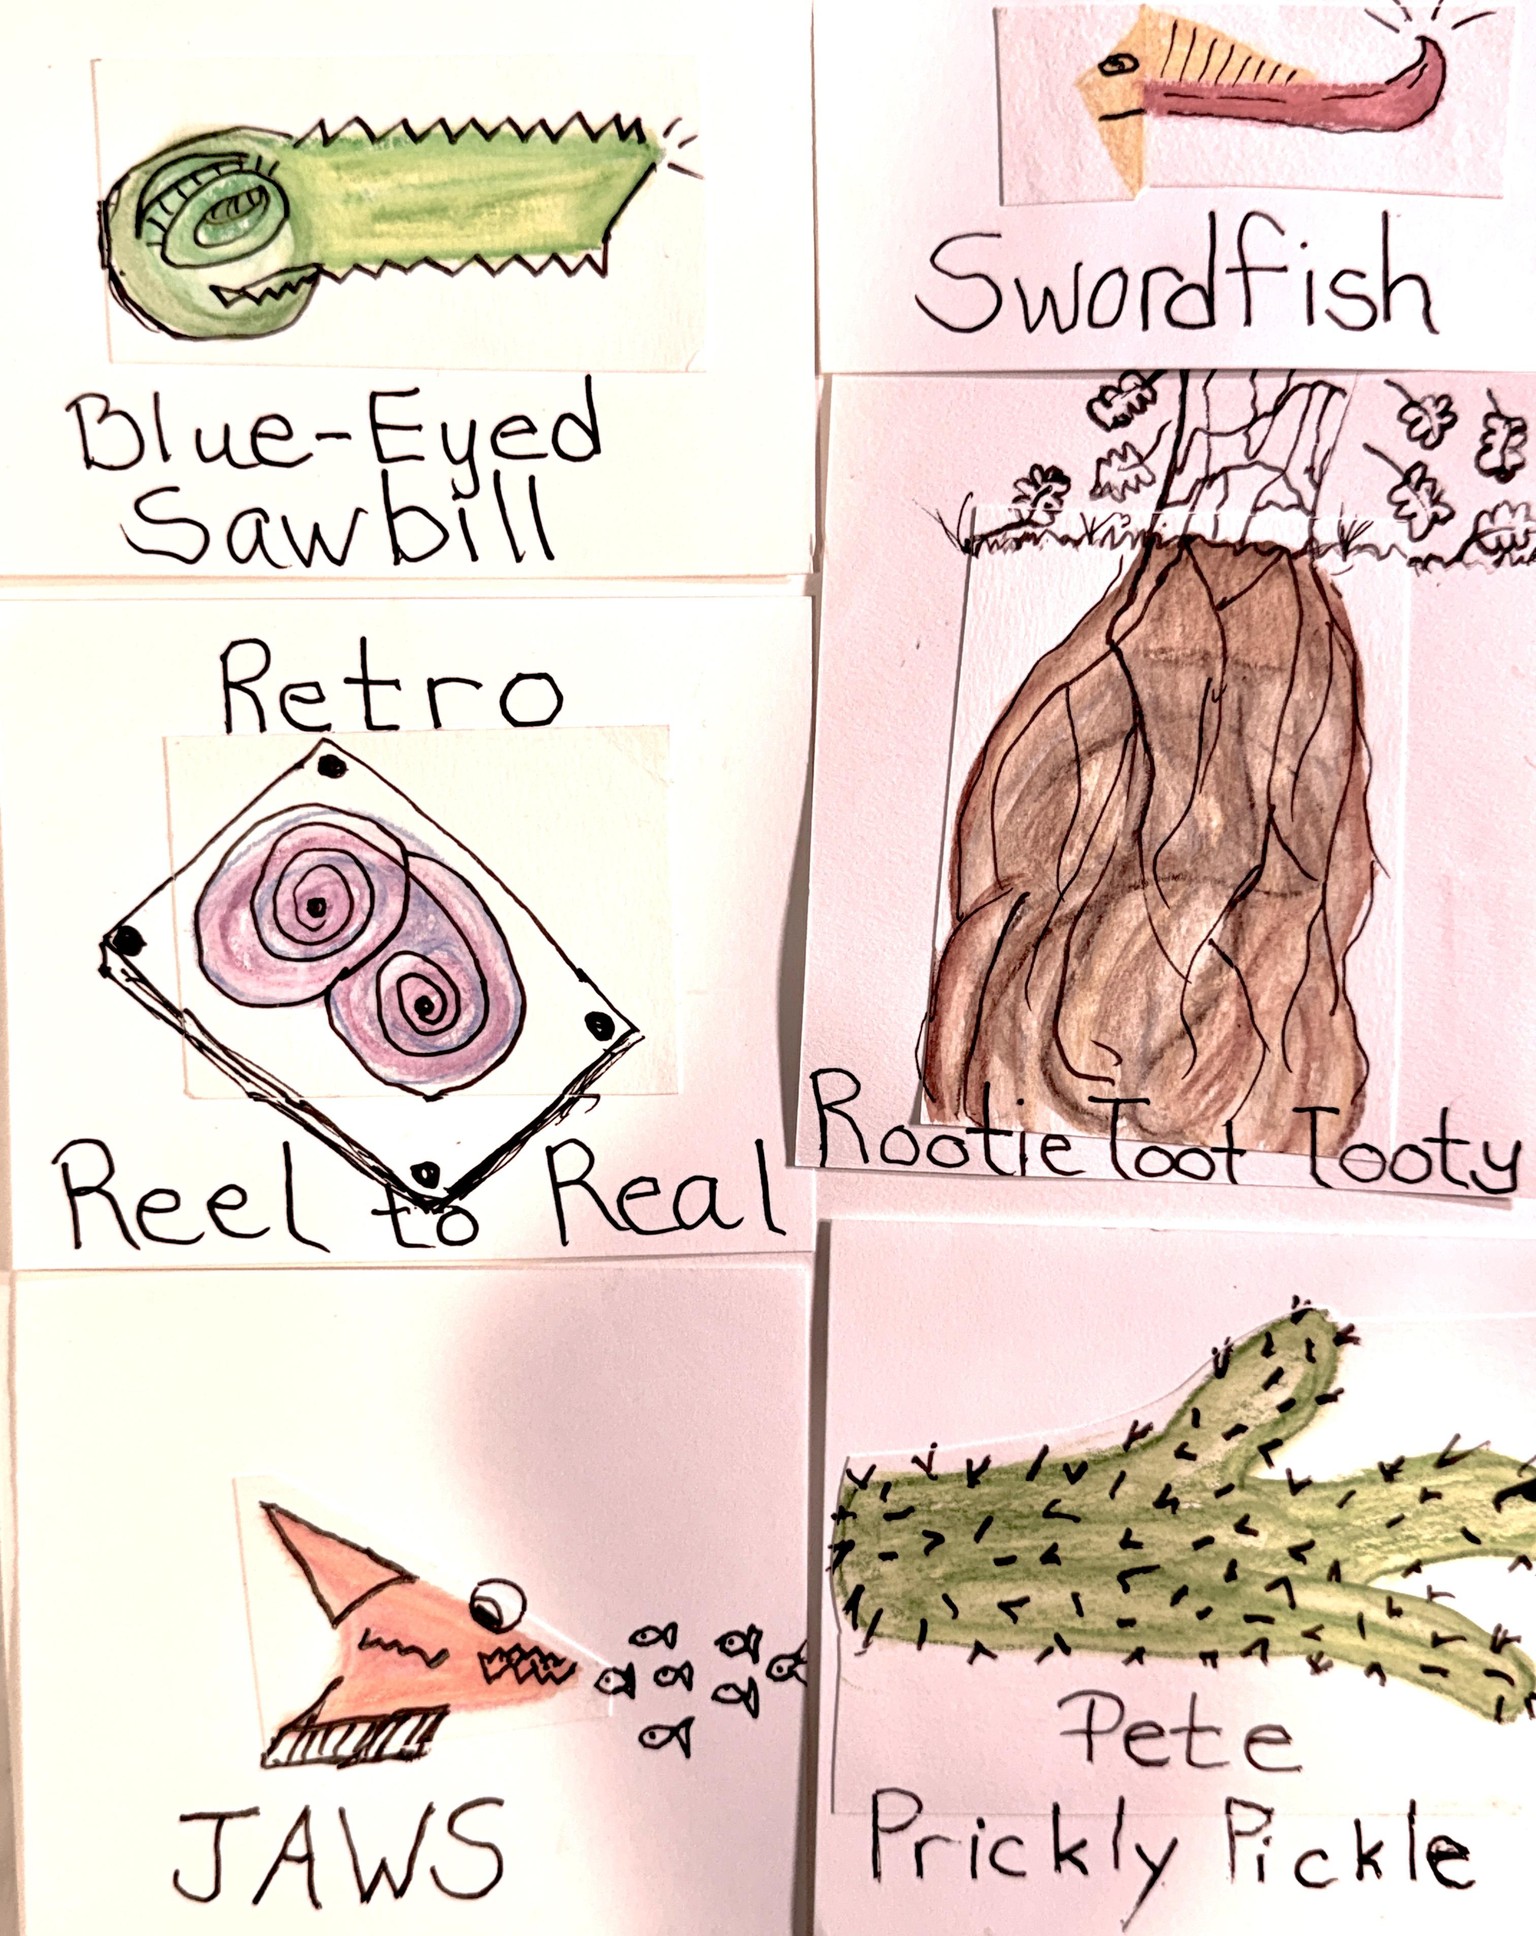 Blue-Eyed
Sawbill
Swordfish
Retro
Reel to Real
Rootie Toot Tooty
JAWS
Pete
Prickly Pickle